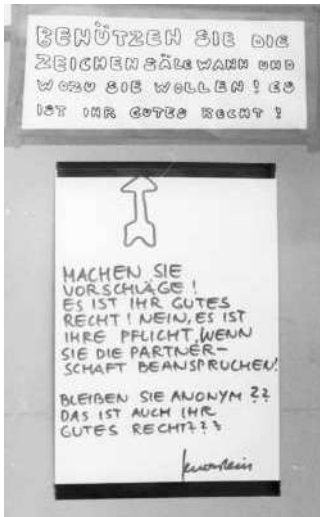 BENÜTZEN SIE DIE
ZEICHENSÄLE WANN UND
WOZU SIE WOLLEN! ES
IST IHR GUTES RECHT!
MACHEN SIE
VORSCHLÄGE!
ES IST IHR GUTES
RECHT! NEIN, ES IST
IHRE PFLICHT, WENN
SIE DIE PARTNER-
SCHAFT BEANSPRUCHEN!
BLEIBEN SIE ANONYM??
DAS IST AUCH IHR
GUTES RECHT???